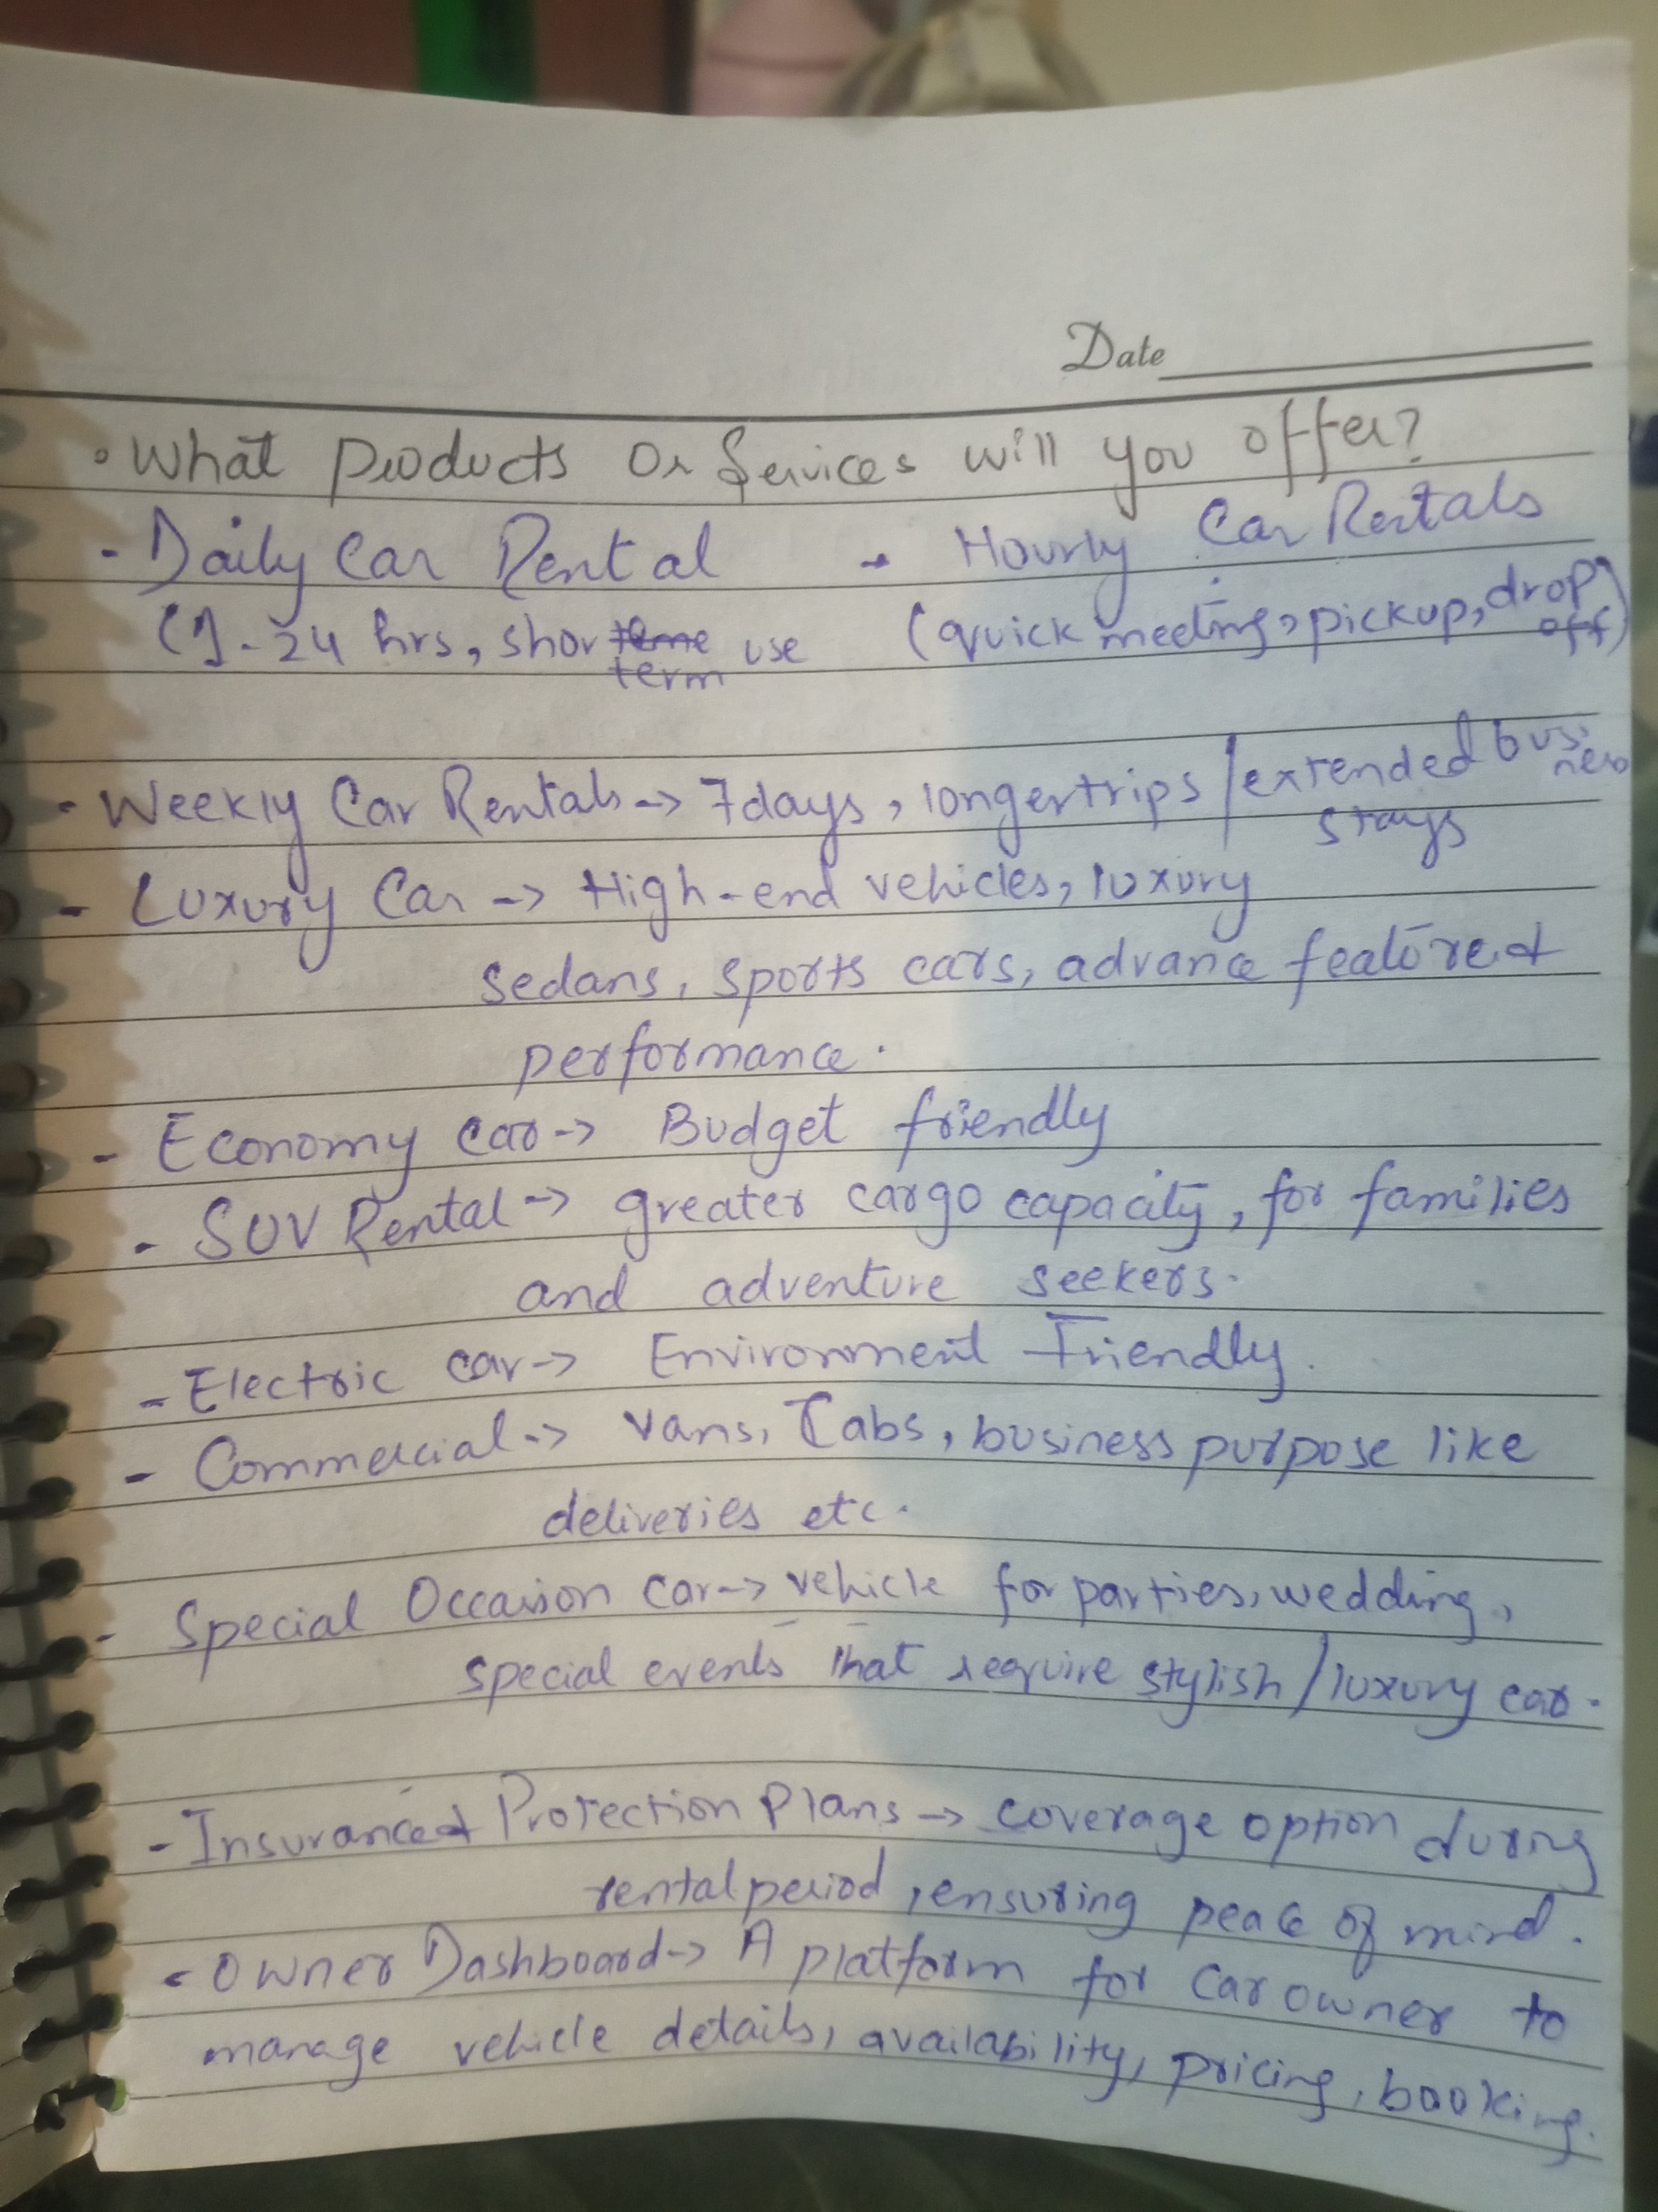 Date
• What products Or Services will you offer?
- Daily Car Rental - Hourly Car Rentals
(1-24 hrs, shor term use (quick meeting, pickup, drop off)
- Weekly Car Rentals -> 7days, longer trips / extended business stays
- Luxury Car -> High-end vehicles, luxury
sedans, sports cars, advance feature &
performance.
- Economy car -> Budget friendly
- SUV Rental -> greater cargo capacity, for families
and adventure seekers.
- Electric car -> Environment Friendly.
- Commercial -> Vans, Cabs, business purpose like
deliveries etc.
- Special Occasion Car -> vehicle for parties, wedding,
special events that require stylish / luxury car.
- Insurance & Protection Plans -> coverage option during
rental period, ensuring peace of mind.
- Owner Dashboard -> A platform for Car owner to
manage vehicle details, availability, pricing, booking.